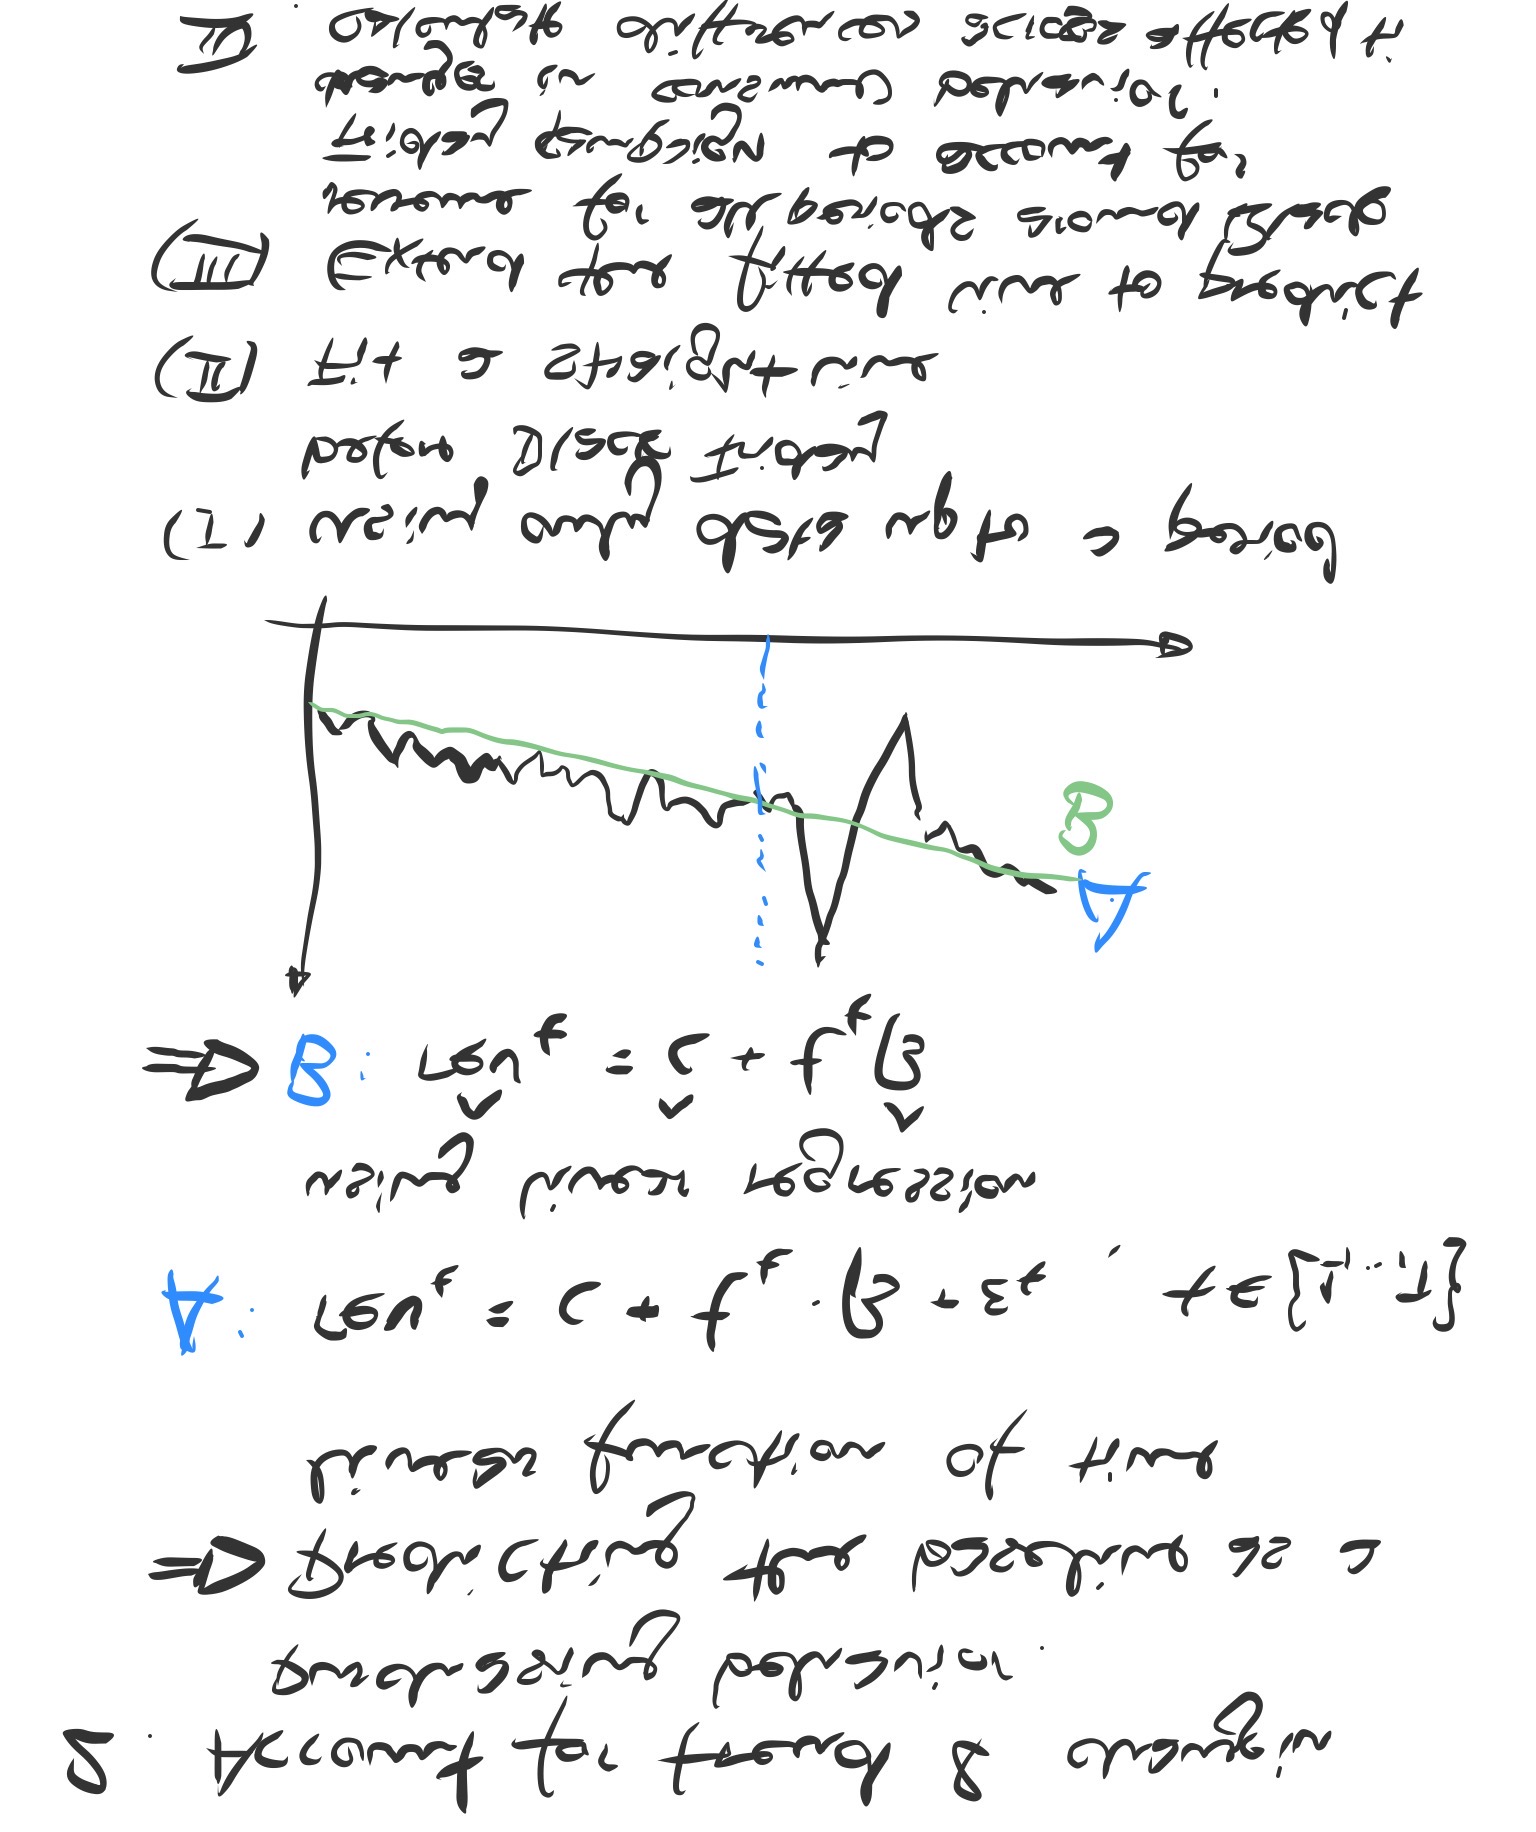 2. Account for trend & changin
purchasing behavior.
⇒ Predicting the baseline as a
linear function of time
A: rev_t = c + t_t · β + ε_t, t ∈ {1,..,T}
using linear regression
⇒ B: rêv_t = ĉ + t_t β̂
A
B
(I) using only data up to a period
before Black Friday
(II) Fit a straight line
(III) Extend the fitted line to predict
revenue for all periods around Black
Friday campaign to account for
changes in consumer behavior.
IV. Calculate differences across affected ti